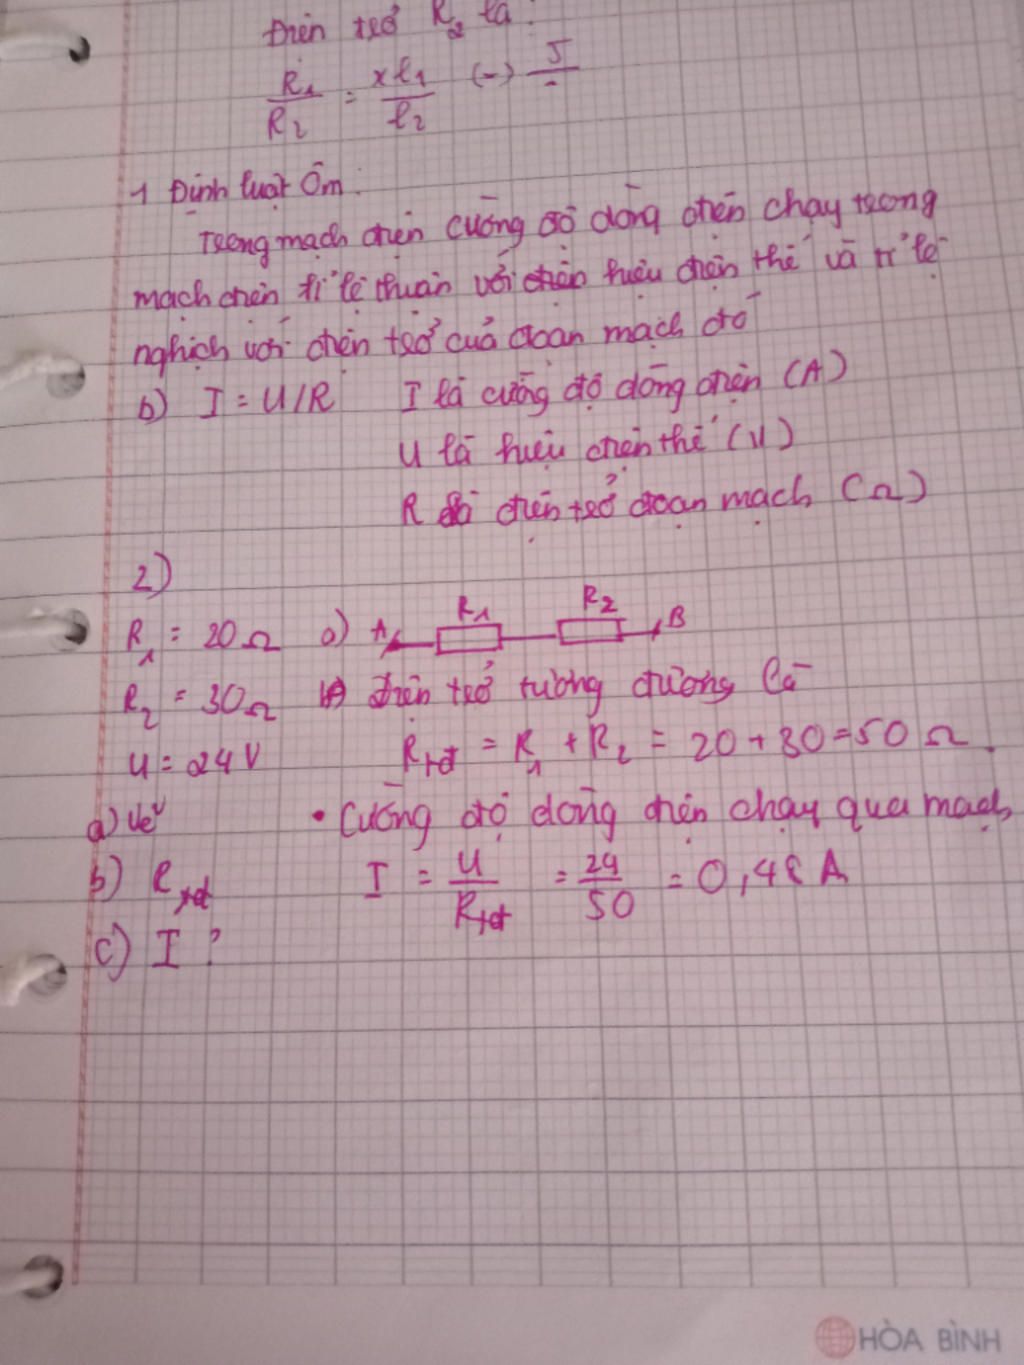 Điện trở R2 là:
R1/R2 = xl1/l2 (-) 5/
1 Định luật Ôm:
Trong mạch điện cường độ dòng điện chạy trong
mạch điện tỉ lệ thuận với điện hiệu điện thế và tỉ lệ
nghịch với điện trở của đoạn mạch đó
b) I = U/R I là cường độ dòng điện (A)
U là hiệu điện thế (V)
R là điện trở đoạn mạch (Ω)
2)
R1 = 20Ω a) A R1 R2 B
R2 = 30Ω b) điện trở tương đương là
U = 24V Rtđ = R1 + R2 = 20 + 30 = 50 Ω.
a) vẽ • Cường độ dòng điện chạy qua mạch
b) Rtđ I = U/Rtđ = 24/50 = 0,48 A
c) I ?
HÒA BÌNH